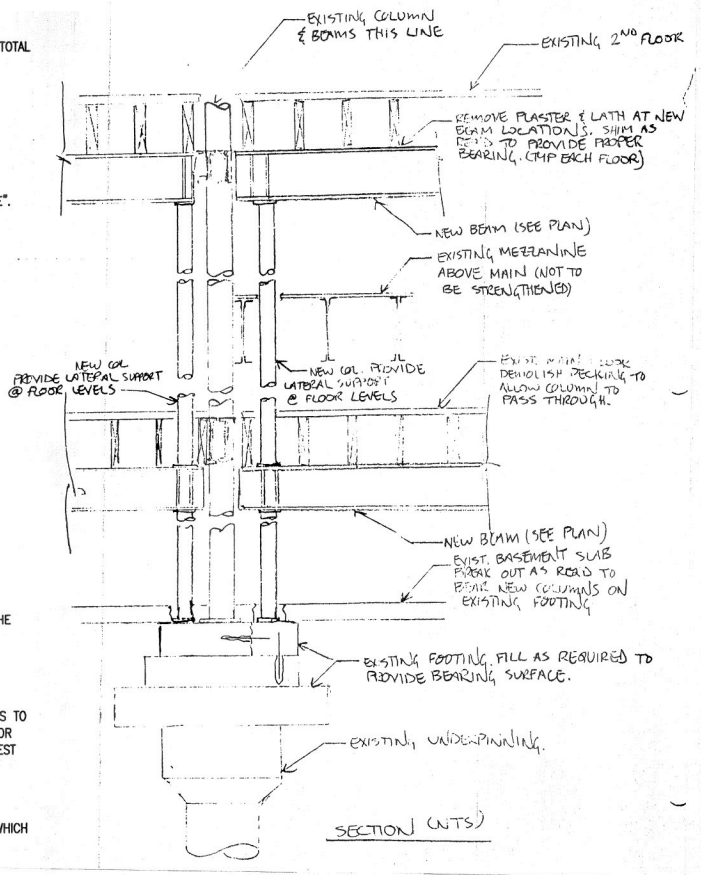 EXISTING COLUMN
& BEAMS THIS LINE
TOTAL
EXISTING 2ND FLOOR
REMOVE PLASTER & LATH AT NEW
BEAM LOCATIONS. SHIM AS
REQ'D TO PROVIDE PROPER
BEARING. (TYP EACH FLOOR)
E".
NEW BEAM (SEE PLAN)
EXISTING MEZZANINE
ABOVE MAIN (NOT TO
BE STRENGTHENED)
NEW COL
PROVIDE LATERAL SUPPORT
@ FLOOR LEVELS
NEW COL. PROVIDE
LATERAL SUPPORT
@ FLOOR LEVELS
EXIST. MAIN FLOOR
DEMOLISH DECKING TO
ALLOW COLUMN TO
PASS THROUGH.
NEW BEAM (SEE PLAN)
EXIST. BASEMENT SLAB
BREAK OUT AS REQ'D TO
BEAR NEW COLUMNS ON
EXISTING FOOTING
HE
EXISTING FOOTING. FILL AS REQUIRED TO
PROVIDE BEARING SURFACE.
S TO
OR
EST
EXISTING UNDERPINNING.
WHICH
SECTION (NTS)